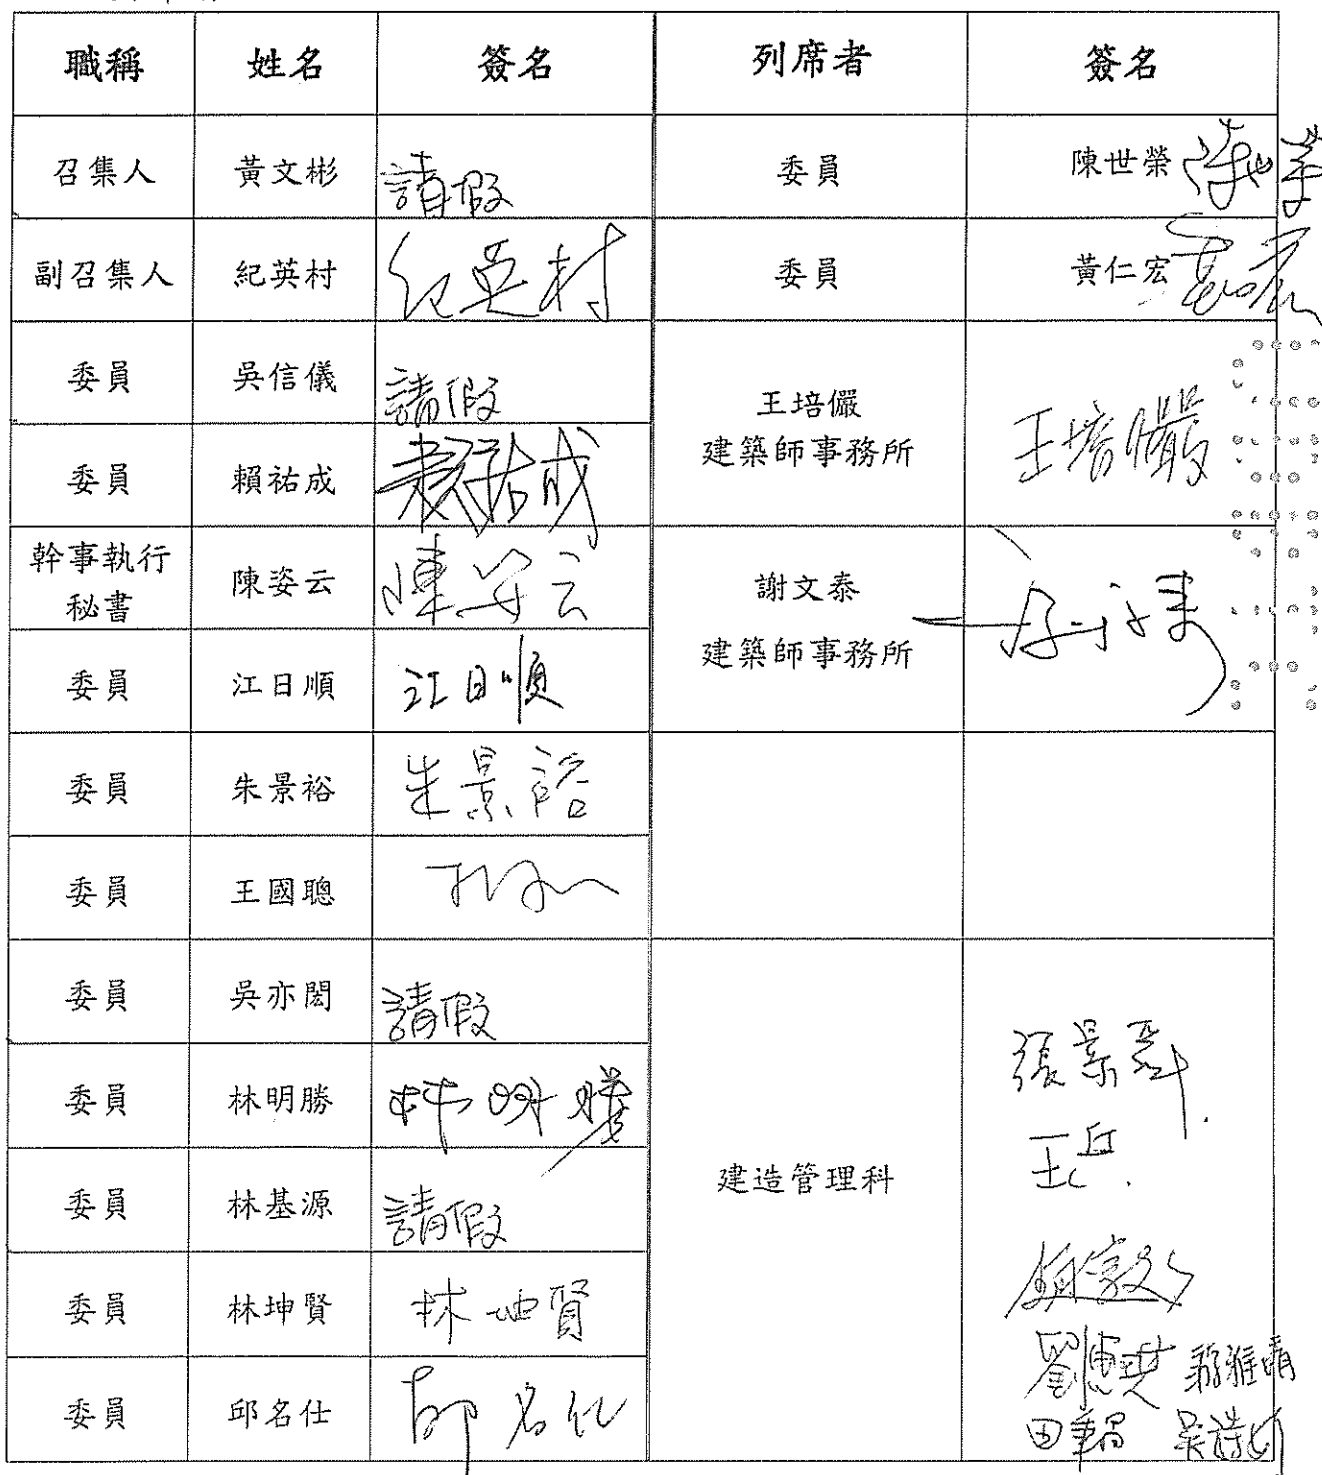 職稱 姓名 簽名 列席者 簽名
召集人 黃文彬 請假 委員 陳世榮
副召集人 紀英村 紀英村 委員 黃仁宏
委員 吳信儀 請假
王培儼
建築師事務所
王培儼
委員 賴祐成 賴祐成
幹事執行
秘書
陳姿云 陳姿云
謝文泰
建築師事務所
委員 江日順 江日順
委員 朱景裕 朱景裕
委員 王國聰
委員 吳亦閎 請假
委員 林明勝 林明勝
委員 林基源 請假
建造管理科
委員 林坤賢 林坤賢
委員 邱名仕 邱名仕